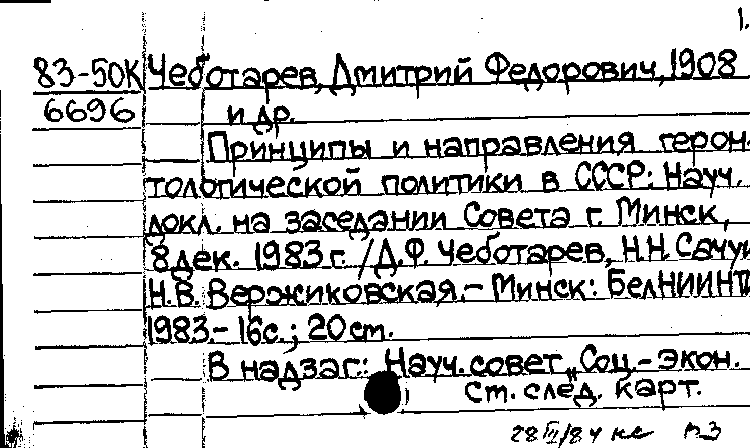 1.
83-50К Чеботарев, Дмитрий Федорович, 1908
6696 и др.
Принципы и направления герон-
тологической политики в СССР: Науч.
докл. на заседании Совета г. Минск,
8 дек. 1983 г. /Д.Ф. Чеботарев, Н.Н. Сачук
Н.В. Вержиковская.- Минск: БелНИИНТИ
1983.- 16с.; 20 см.
В надзаг.: Науч. совет „Соц.-экон.
См. след. карт.